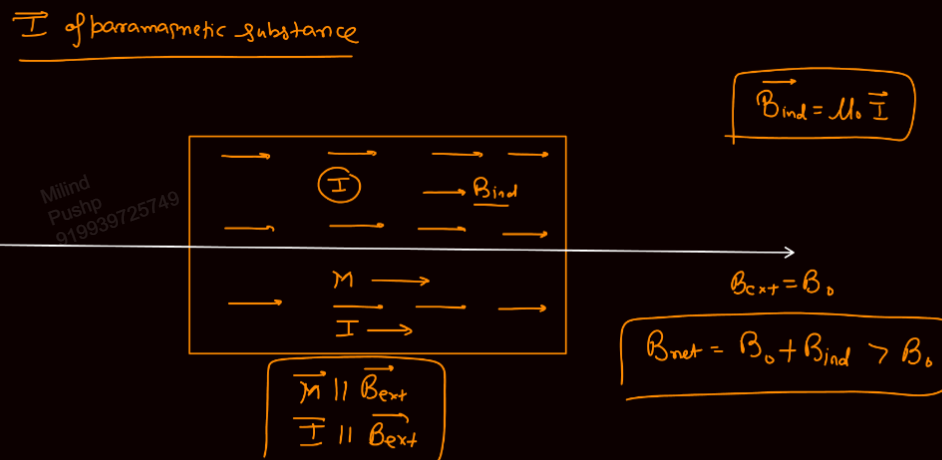 I⃗ of paramagnetic substance
B⃗ind = μ₀ I⃗
I
Bind
Milind
Pushp
919939725749
M
I
Bext = B₀
Bnet = B₀ + Bind > B₀
M⃗ || B⃗ext
I⃗ || B⃗ext